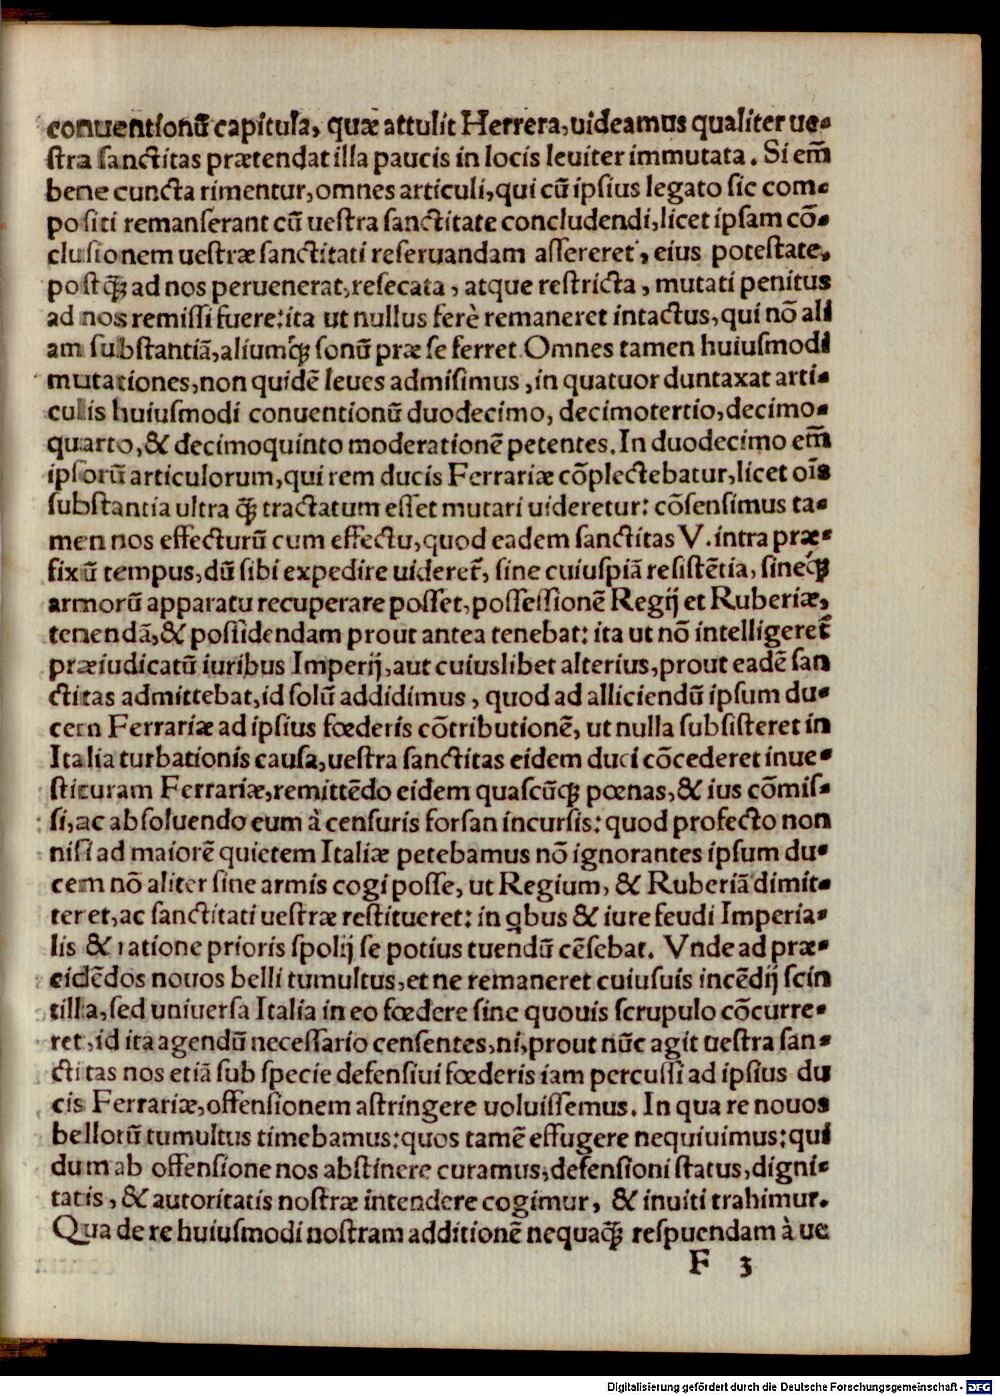 conuentionū capitula, quæ attulit Herrera, uideamus qualiter ue-
stra sanctitas prætendat illa paucis in locis leuiter immutata. Si em̄
bene cuncta rimentur, omnes articuli, qui cū ipsius legato sic com-
positi remanserant cū uestra sanctitate concludendi, licet ipsam cō-
clusionem uestræ sanctitati reseruandam assereret, eius potestate,
postq̄ʒ ad nos peruenerat, resecata, atque restricta, mutati penitus
ad nos remissi fuere: ita ut nullus ferè remaneret intactus, qui nō ali
am substantiā, aliumq́ʒ sonū præ se ferret. Omnes tamen huiusmodi
mutationes, non quidē leues admisimus, in quatuor duntaxat arti-
culis huiusmodi conuentionū duodecimo, decimotertio, decimo-
quarto, & decimoquinto moderationē petentes. In duodecimo em̄
ipsorū articulorum, qui rem ducis Ferrariæ cōplectebatur, licet oīs
substantia ultra q̄ʒ tractatum esset mutari uideretur: cōsensimus ta-
men nos effecturū cum effectu, quod eadem sanctitas V. intra præ-
fixū tempus, dū sibi expedire uideret̄, sine cuiuspiā resistētia, sineq́ʒ
armorū apparatu recuperare posset, possessionē Regij et Ruberiæ,
tenendā, & possidendam prout antea tenebat: ita ut nō intelligeret̄
præiudicatū iuribus Imperij, aut cuiuslibet alterius, prout eadē san
ctitas admittebat, id solū addidimus, quod ad alliciendū ipsum du-
cem Ferrariæ ad ipsius fœderis cōtributionē, ut nulla subsisteret in
Italia turbationis causa, uestra sanctitas eidem duci cōcederet inue-
stituram Ferrariæ, remittēdo eidem quascūq́ʒ pœnas, & ius cōmis-
si, ac absoluendo eum à censuris forsan incursis: quod profecto non
nisi ad maiorē quietem Italiæ petebamus nō ignorantes ipsum du-
cem nō aliter sine armis cogi posse, ut Regium, & Ruberiā dimit-
teret, ac sanctitati uestræ restitueret: in qbus & iure feudi Imperia-
lis & ratione prioris spolij se potius tuendū cēsebat. Vnde ad præ-
cidēdos nouos belli tumultus, et ne remaneret cuiusuis incēdij scin
tilla, sed uniuersa Italia in eo fœdere sine quouis scrupulo cōcurre-
ret, id ita agendū necessario censentes, ni, prout nūc agit uestra san-
ctitas nos etiā sub specie defensiui fœderis iam percussi ad ipsius du
cis Ferrariæ, offensionem astringere uoluissemus. In qua re nouos
bellorū tumultus timebamus: quos tamē effugere nequiuimus: qui
dum ab offensione nos abstinere curamus, defensioni status, digni-
tatis, & autoritatis nostræ intendere cogimur, & inuiti trahimur.
Qua de re huiusmodi nostram additionē nequaq̄ʒ respuendam à ue
F 3
Digitalisierung gefördert durch die Deutsche Forschungsgemeinschaft - DFG